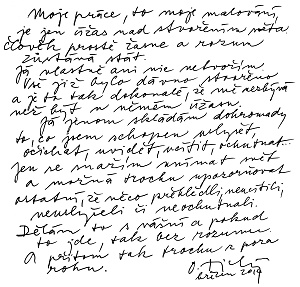 Moje práce, to moje malování,
je jen úžas nad stvořením světa.
Člověk prostě žasne a rozum
zůstává stát.
Já vlastně ani nic netvořím
Vše již bylo dávno stvořeno
a je to tak dokonalé, že mě nezbývá
než být v němém úžasu.
Já jenom skládám dohromady
to, co jsem schopen slyšet,
očichat, uvidět, ucítit, ochutnat...
Jen se snažím vnímat svět
a možná trochu upozorňovat
ostatní, že něco přehlédli, neucítili,
neuslyšeli či neochutnali.
Dělám to s vášní a pokud
to jde, tak bez rozumu.
A přitom tak trochu z pora
rohu.
březen 2019